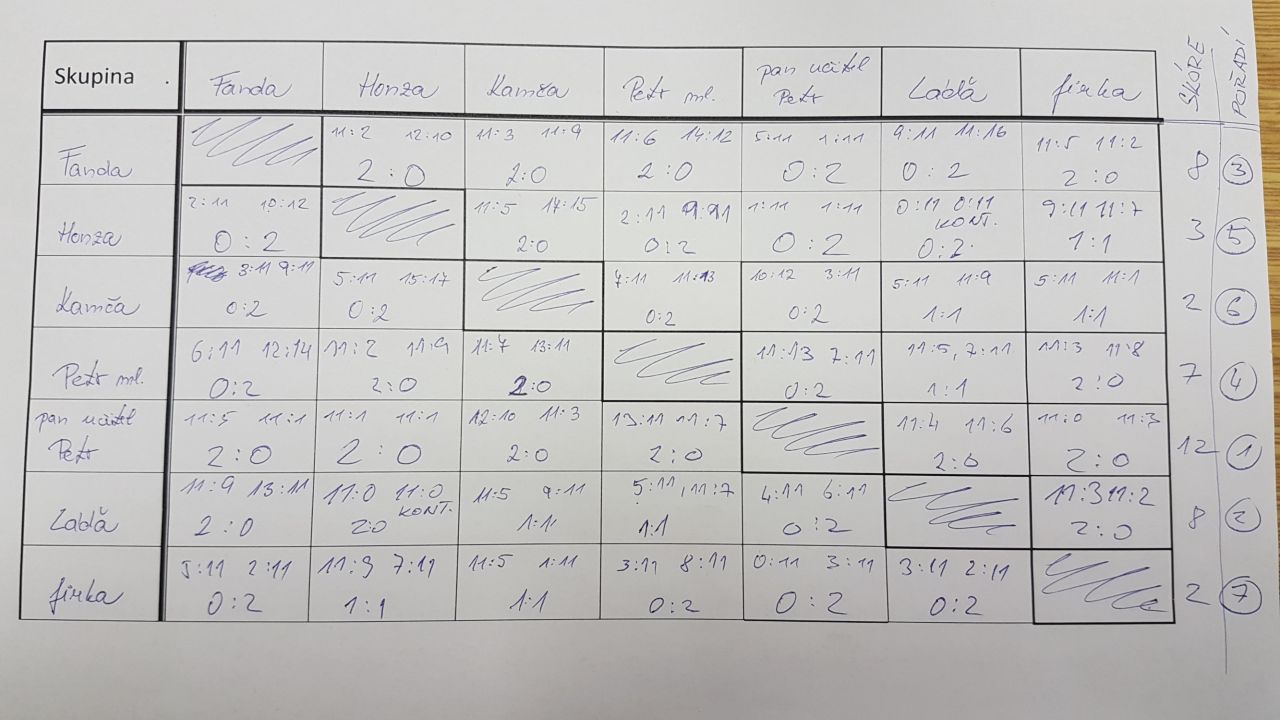 Skupina . Fanda Honza Kamča Petr ml. pan učitl Petr Laďa Jirka SKÓRE POŘADÍ
Fanda
11:2 12:10 11:3 11:9 11:6 14:12 5:11 1:11 9:11 11:5 11:2
2:0 2:0 2:0 0:2 0:2 2:0 8 3
Honza
2:11 10:12 11:5 17:15 2:11 9:11 1:11 :11 0:11 0:11 9:11 11:7
KONT.
0:2 2:0 0:2 0:2 0:2 1:1 3 5
Kamča
3:11 9:11 5:11 15:17 7:11 11:13 10:12 3:11 5:11 11:9 5:11 11:1
0:2 0:2 0:2 0:2 1:1 1:1 2 6
Petr ml.
6:11 12:14 11:2 11:9 11:7 13:11 11:13 7:11 11:5, 7:11 11:3 11:8
0:2 2:0 2:0 0:2 1:1 2:0 7 4
pan učitl
Petr
11:5 11:1 11:1 11:1 12:10 11:3 13:11 11:7 11:4 11:6 11:0 11:3
2:0 2:0 2:0 2:0 2:0 2:0 12 1
Laďa
11:9 13:11 11:0 11:0 11:5 9:11 5:11, 11:7 4:11 6:11 11:3 11:2
KONT.
2:0 20 1:1 1:1 0:2 2:0 8 2
Jirka
5:11 2:11 11:9 7:11 11:5 1:11 3:11 8:11 0:11 3:11 3:11 2:11
0:2 1:1 1:1 0:2 0:2 0:2 2 7